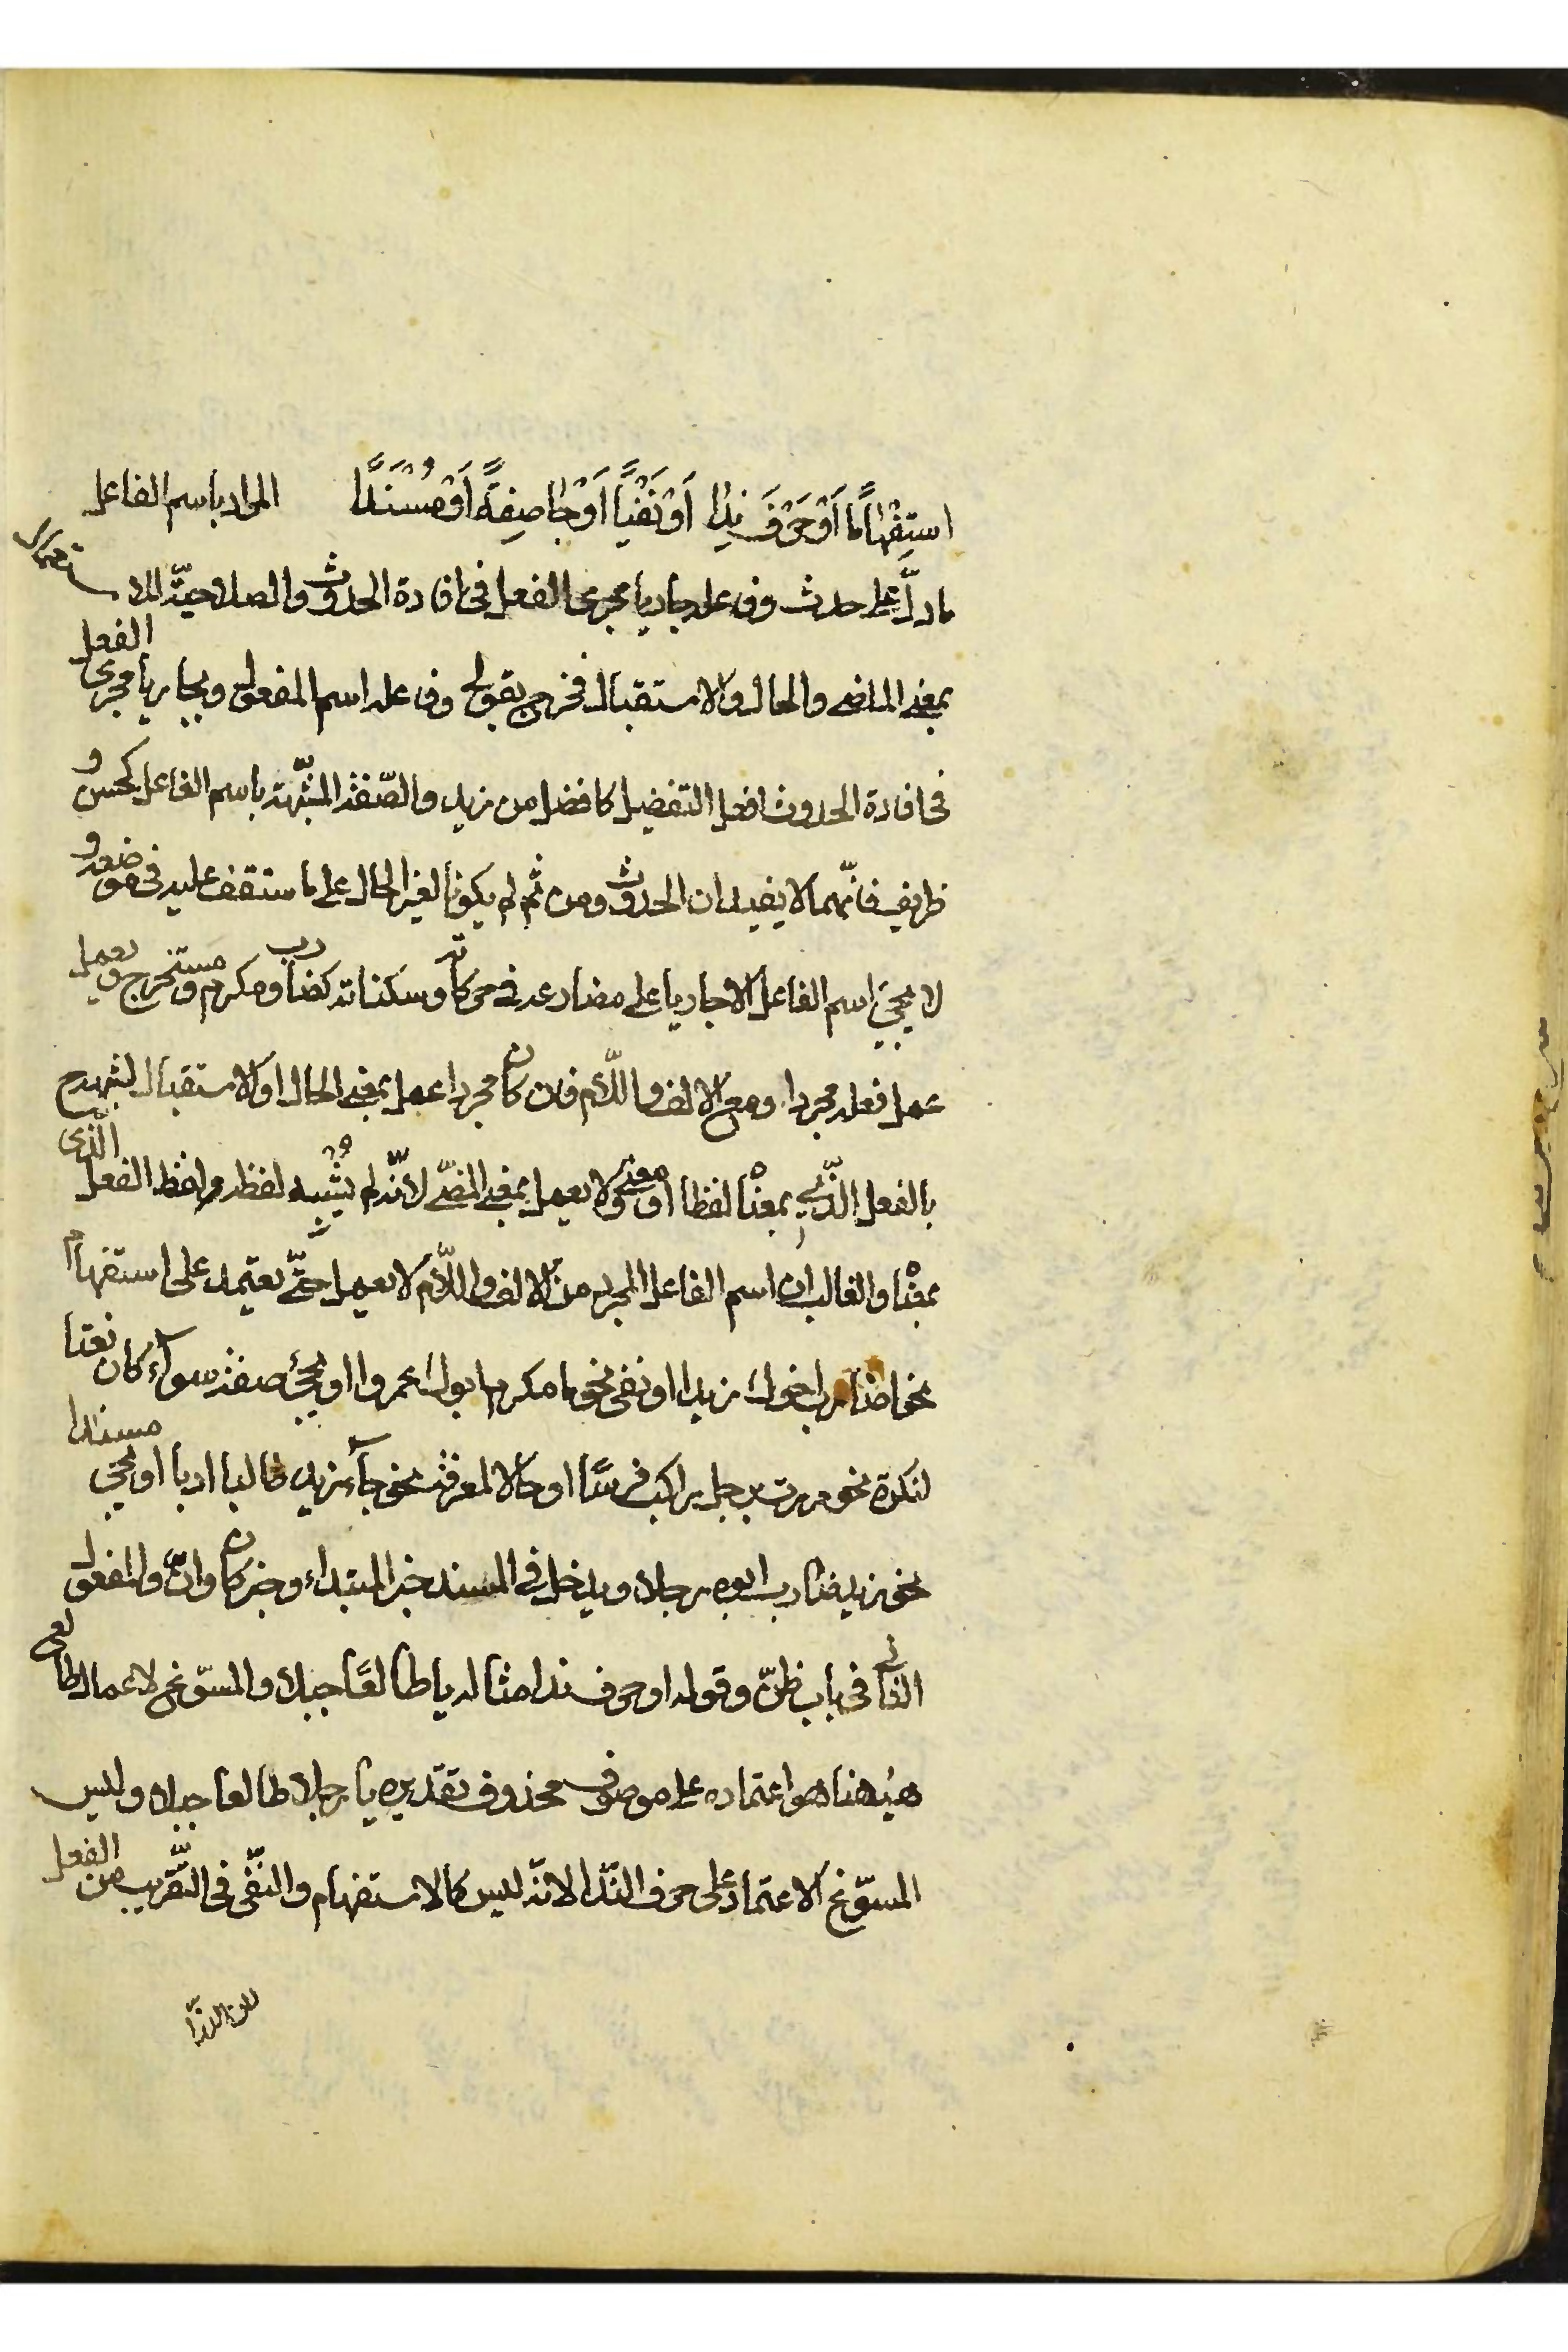 اسْتِفْهَامًا اَوْ حَرْفَ نِدَا اَوْ نَفْيًا اَوْ جَا صِفَةً اَوْ مُسْنَدًا المراد باسم الفاعل
ما دلّ على حدث وفاعله جاريا مجرى الفعل فى افادة الحدوث والصلاحيّة للاستعمال
بمعنى الماضى والحال والاستقبال فخرج بقولى وفاعله اسم المفعول وبجاريا مجرى الفعل
فى افادة الحدوث افعل التفضيل كافضل من زيد والصّفة المشبّهة باسم الفاعل كحسن و
ظريف فانّهما لا يفيدان الحدوث ومن ثم لم يكونا لغير الحال على ما ستقف عليه فى موضعه و
لا يجئ اسم الفاعل الا جاريا على مضارعه فى حركاته وسكناته كضارب ومكرم ومستخرج ويعمل
عمل فعله مجردا ومع الالف واللّام فان كان مجردا عمل بمعنى الحال او الاستقبال لشبهه ح
بالفعل الّذى بمعناه لفظا او معنى ولا يعمل بمعنى المضىّ لانّه لم يُشْبِه لفظه لفظ الفعل الّذى
بمعناه والغالب ان اسم الفاعل المجرد من الالف واللّام لا يعمل حتّى يعتمد على استفهام
نحو اضارب اخوك زيدا او نفى نحو ما مكرم ابوك عمروا او يجئ صفة سواء كان نعتا
لنكرة نحو مررت برجل راكب فرسًا او حالا لمعرفة نحو جآء زيد طالبا ادبا او يجئ مسندا
نحو زيد ضارب ابوه رجلا ويدخل فى المسند خبر المبتداء وخبر كان وانّ والمفعول
الثانى فى باب ظنّ وقوله او حرف ندا مثاله يا طالعًا جبلا والمسوّغ لاعمال طالع
هيهنا هو اعتماده على موصوف محذوف تقديره يا رجلا طالعا جبلا وليس
المسوّغ الاعتماد على حرف النّدا لانّه ليس كالاستفهام والنّفى فى التّقريب من الفعل
لان النّدا